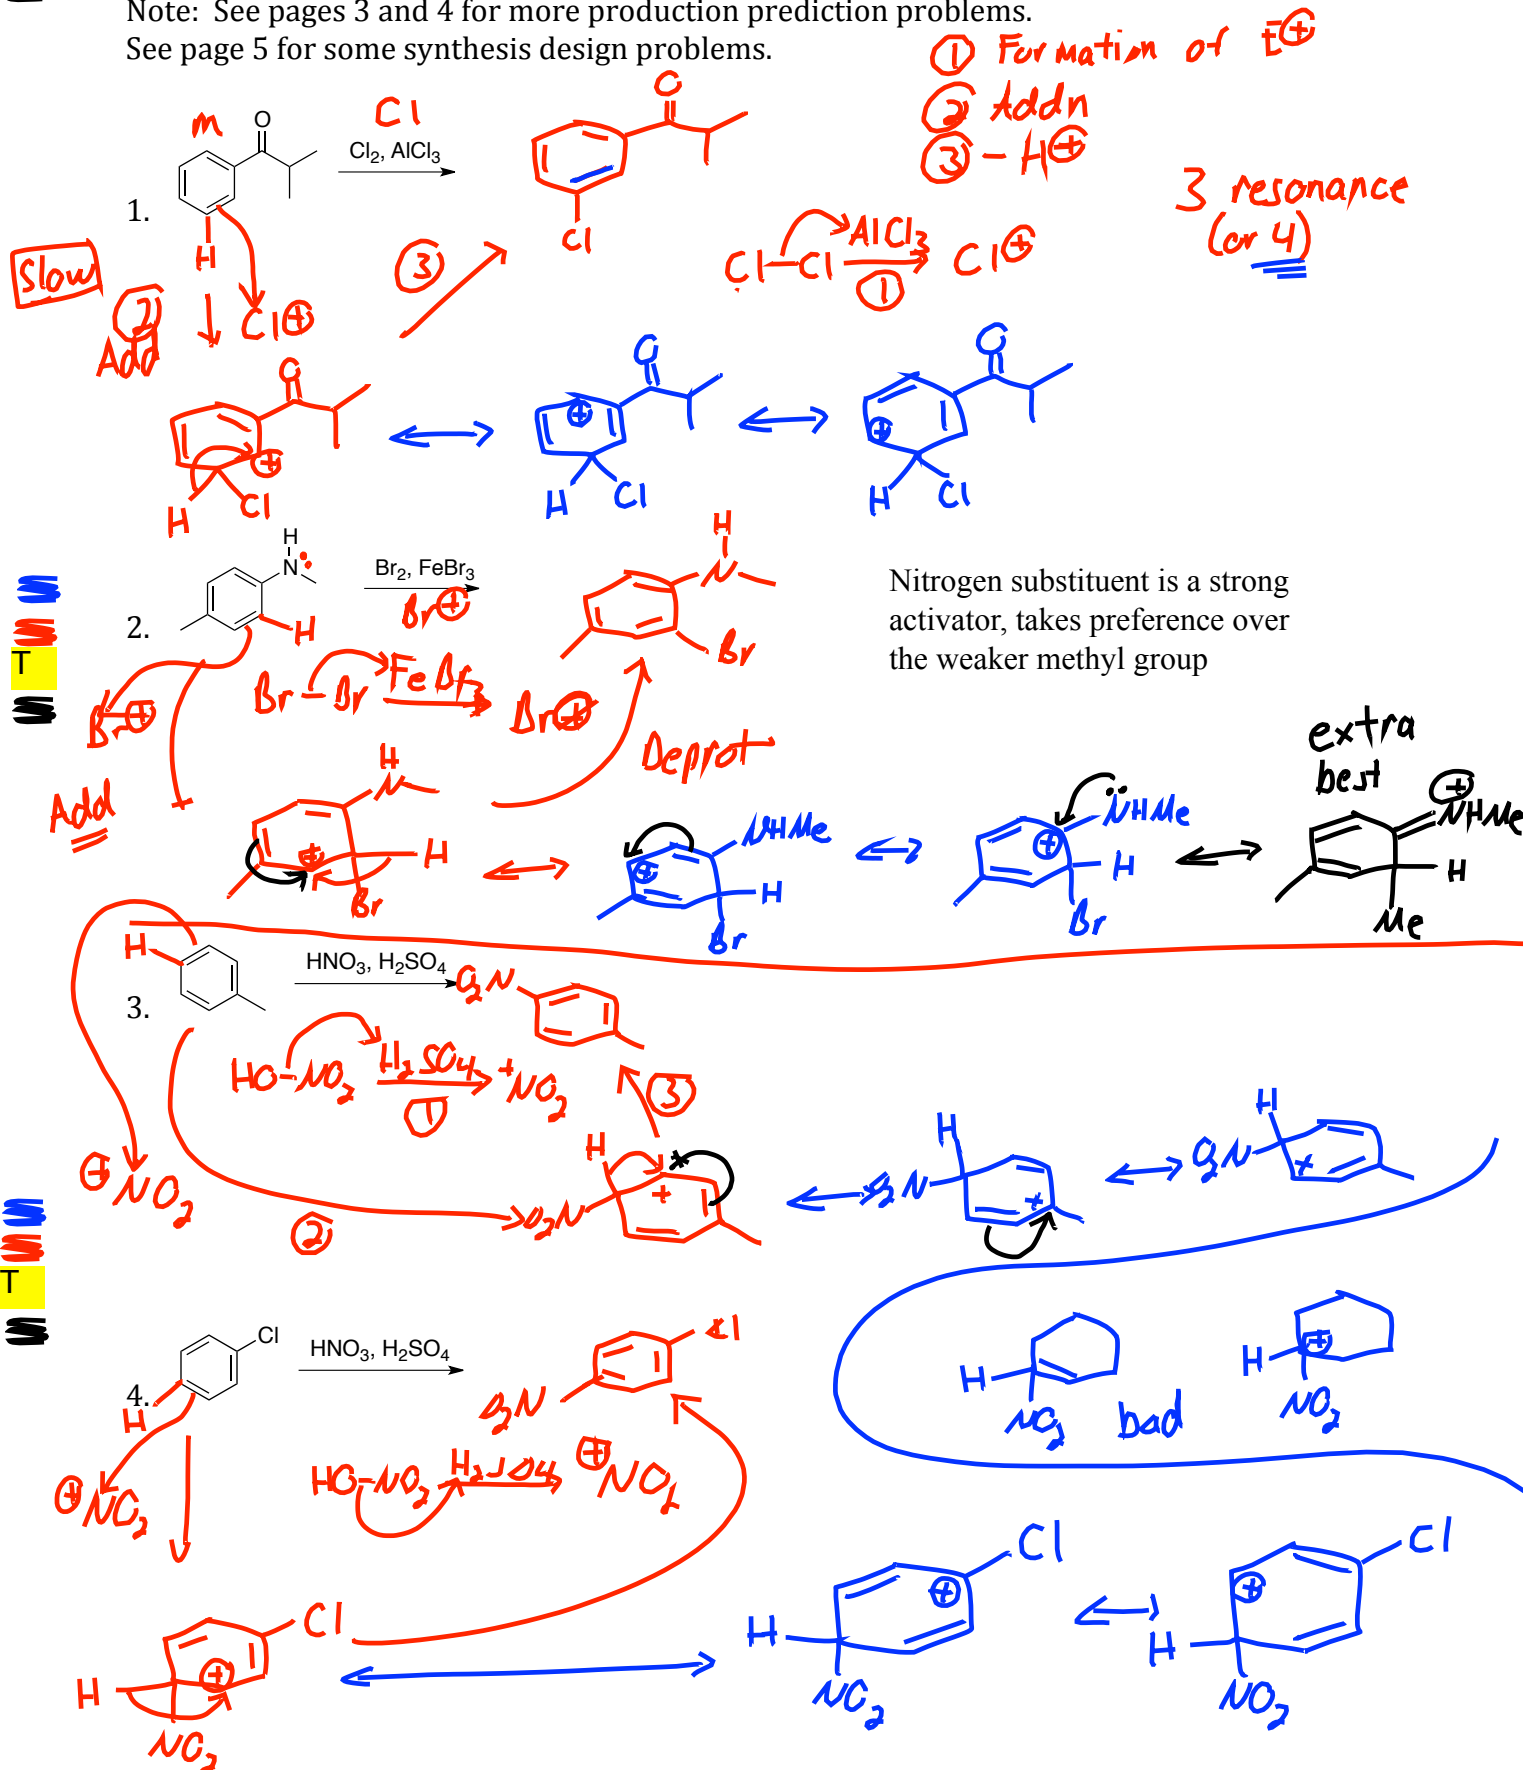 Note:  See pages 3 and 4 for more production prediction problems.
See page 5 for some synthesis design problems.
① Formation of E⊕
② Addn
③ - H⊕
3 resonance
(or 4)
1.
m
O
H
Cl
Cl2, AlCl3
O
Cl
Slow
② Add
Cl⊕
③
Cl-Cl AlCl3 Cl⊕
①
O
⊕
H Cl
O
⊕
H Cl
O
⊕
H Cl
2.
H
N:
H
Br2, FeBr3
Br⊕
H
N
Br
Nitrogen substituent is a strong
activator, takes preference over
the weaker methyl group
T
Br⊕
Br-Br FeBr3 Br⊕
Deprot
Add
H
N
⊕
H
Br
NHMe
⊕
H
Br
NHMe
⊕
H
Br
extra
best
⊕
NHMe
H
Me
3.
H
HNO3, H2SO4
O2N
HO-NO2 H2SO4 +NO2
①
③
⊕NO2
②
H
O2N
+
H
O2N
+
H
O2N
+
T
4.
Cl
H
HNO3, H2SO4
Cl
O2N
H
NO2
bad
H
⊕
NO2
⊕NO2
HO-NO2 H2SO4 ⊕NO2
Cl
H
⊕
NO2
Cl
⊕
H
NO2
Cl
⊕
H
NO2